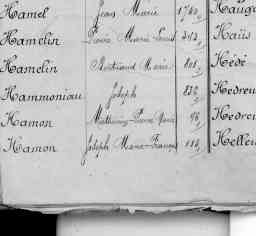 Hamel Jean Marie 1740 Haug
Hamelin Pierre Marie Louis 343 Haüs
Hamelin Bertrand Marie 801 Hédé
Hammoniau Joseph 832 Hedreu
Hamon Mathurin Pierre Marie 96 Hedreu
Hamon Joseph Marie François 112 Helleu